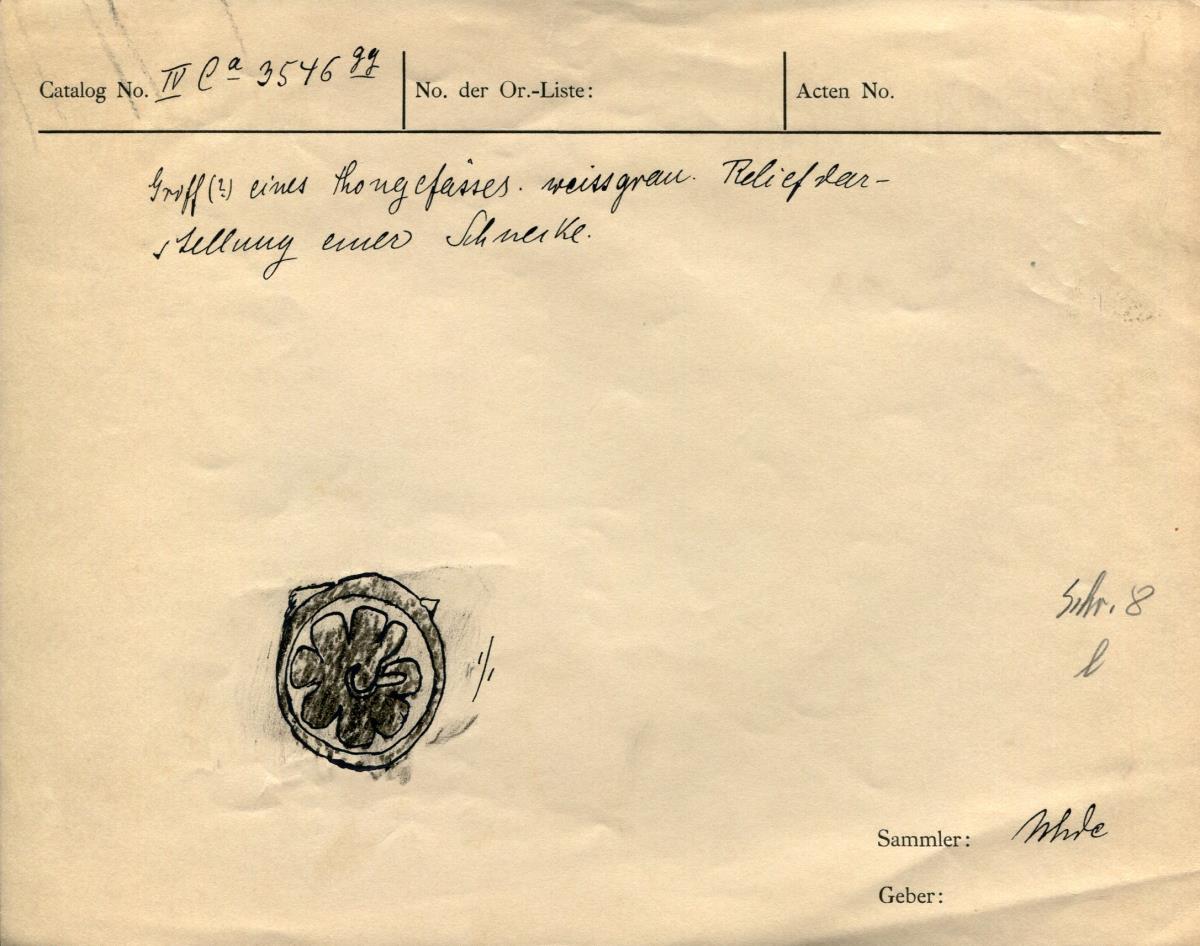 Catalog No. IV Ca 3546 gg
No. der Or.-Liste:
Acten No.
Griff (?) eines Thongefässes. weissgrau. Reliefdar-
stellung einer Schnecke.
1/1
Schr. 8
l
Sammler: Uhde
Geber: